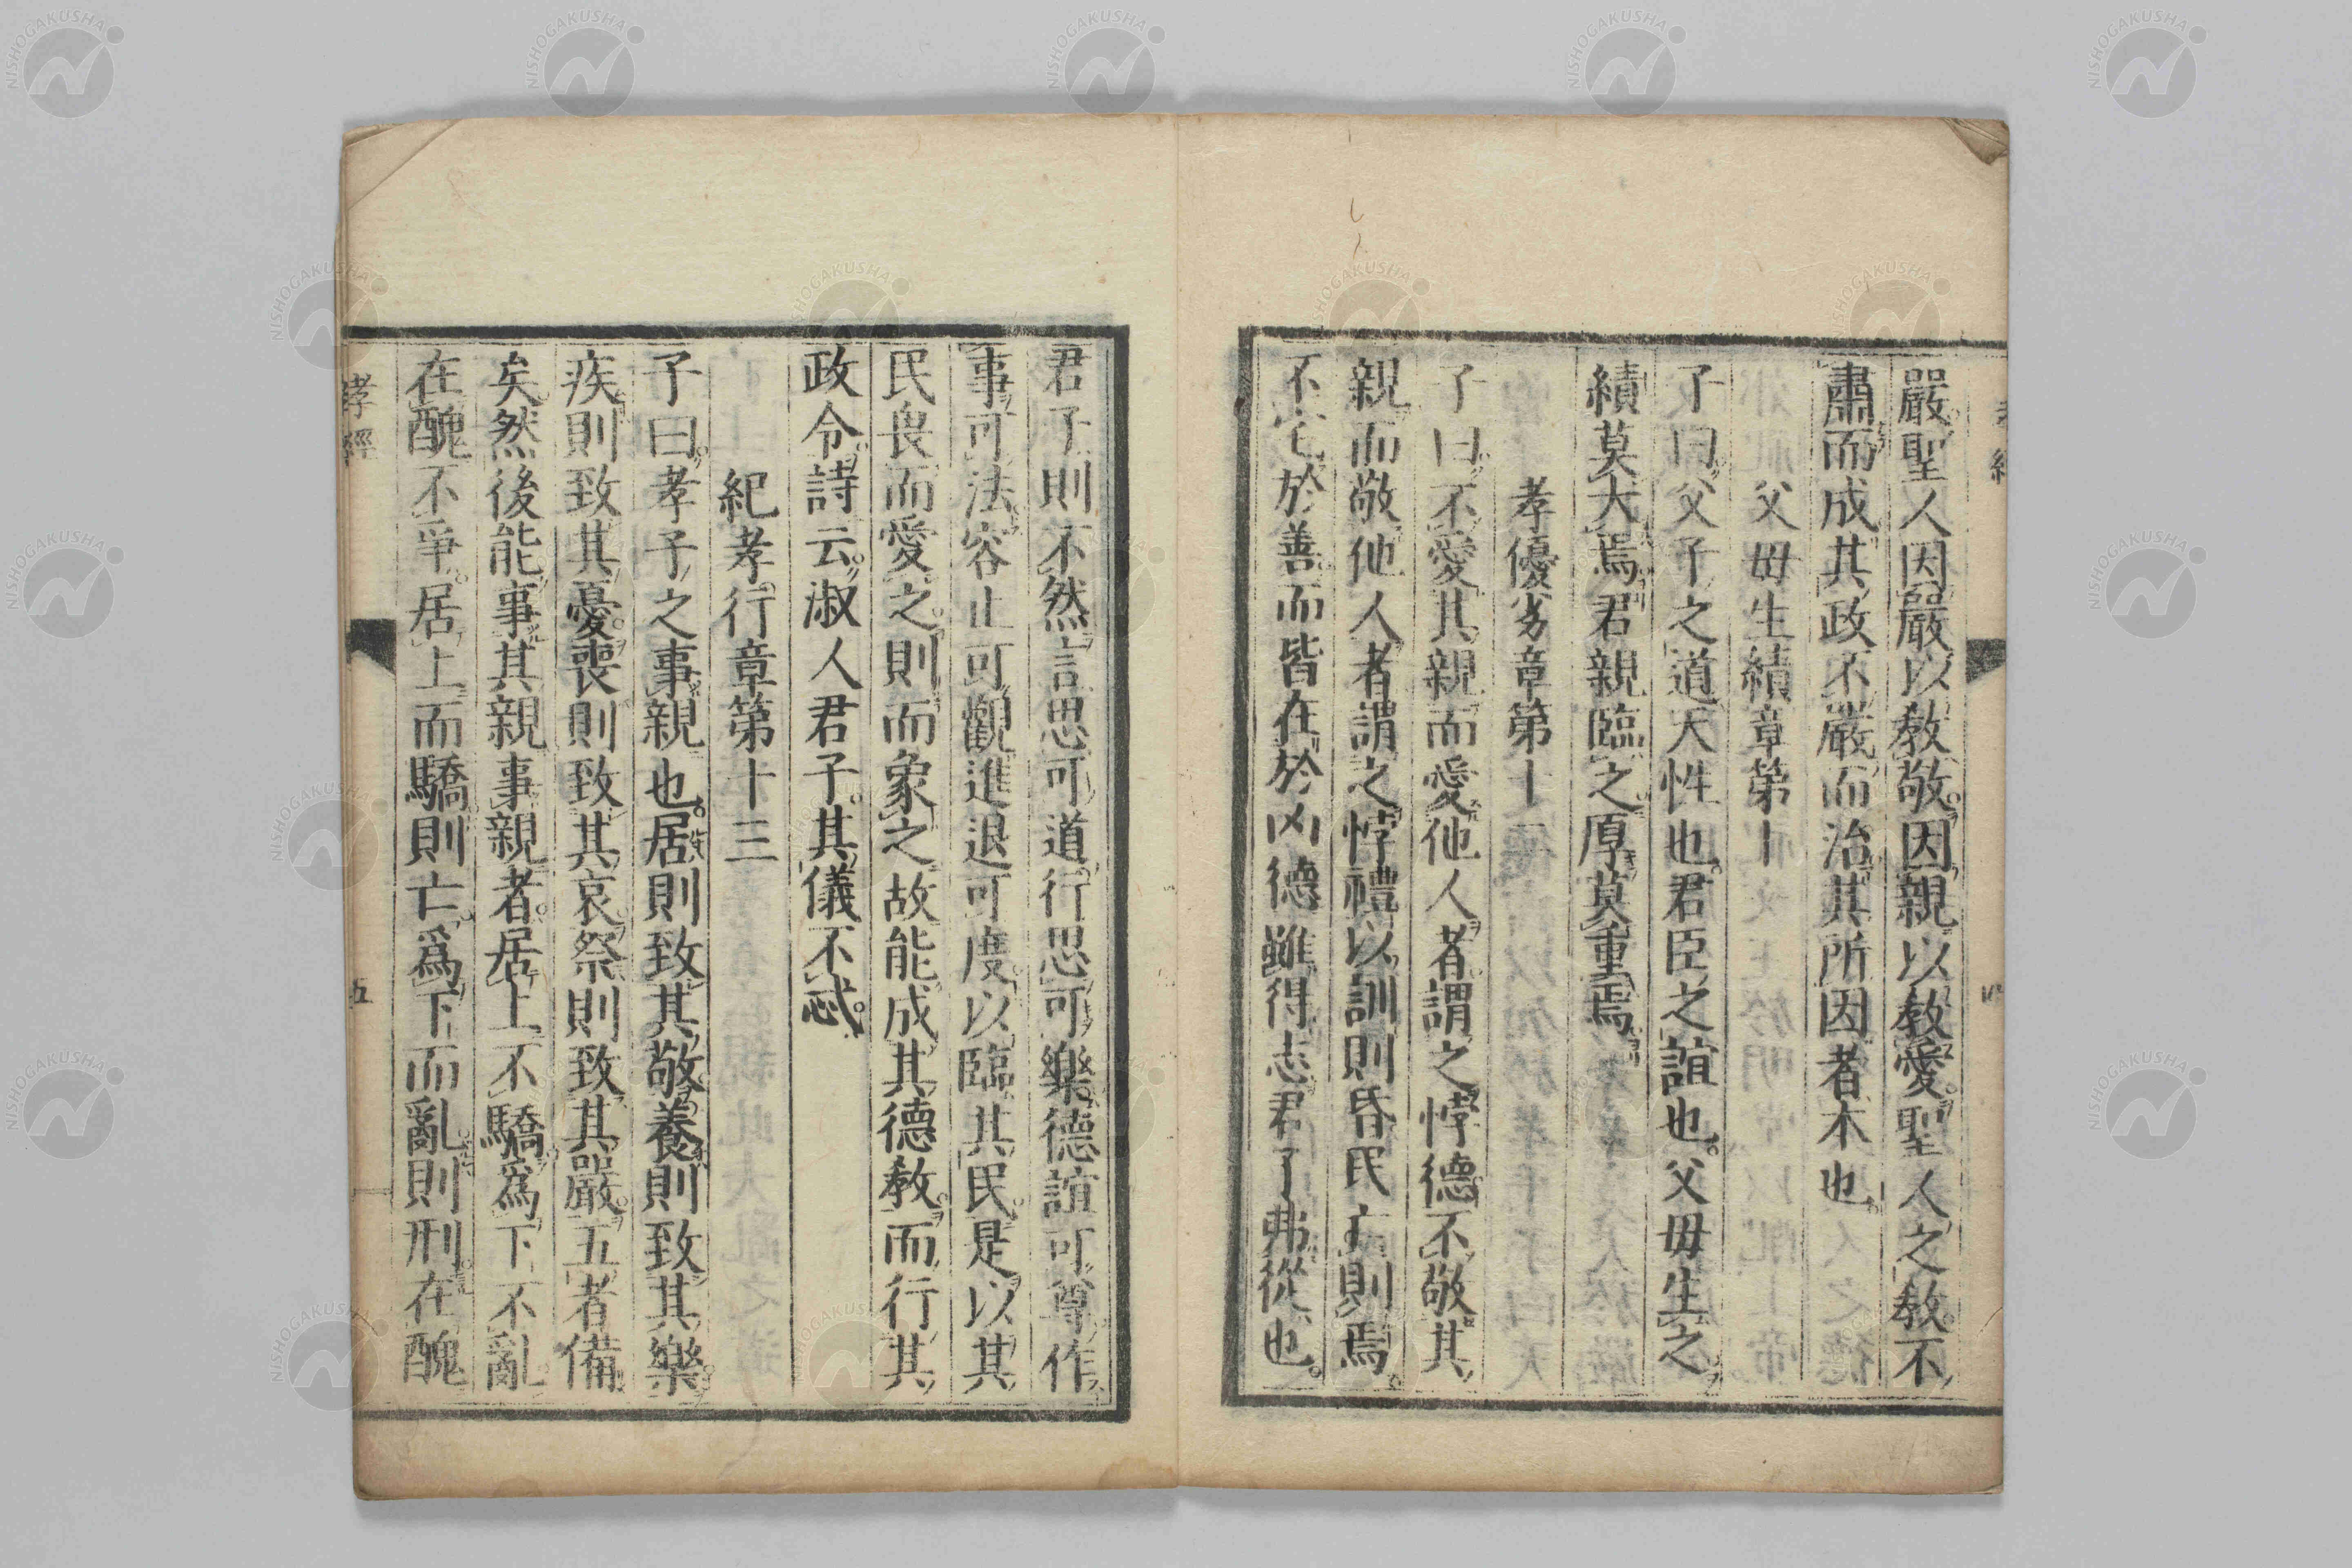 嚴聖人因嚴以教敬因親以教愛聖人之教不
肅而成其政不嚴而治其所因者本也
父母生績章第十
子曰父子之道天性也君臣之誼也父母生之
績莫大焉君親臨之厚莫重焉
孝優劣章第十
子曰不愛其親而愛他人者謂之悖德不敬其
親而敬他人者謂之悖禮以訓則昏民亡則焉
不宅於善而皆在於凶德雖得志君子弗從也
君子則不然言思可道行思可樂德誼可尊作
事可法容止可觀進退可度以臨其民是以其
民畏而愛之則而象之故能成其德教而行其
政令詩云淑人君子其儀不忒
紀孝行章第十三
子曰孝子之事親也居則致其敬養則致其樂
疾則致其憂喪則致其哀祭則致其嚴五者備
矣然後能事其親事親者居上不驕爲下不亂
在醜不爭居上而驕則亡爲下而亂則刑在醜
孝經
五
NISHOGAKUSHA